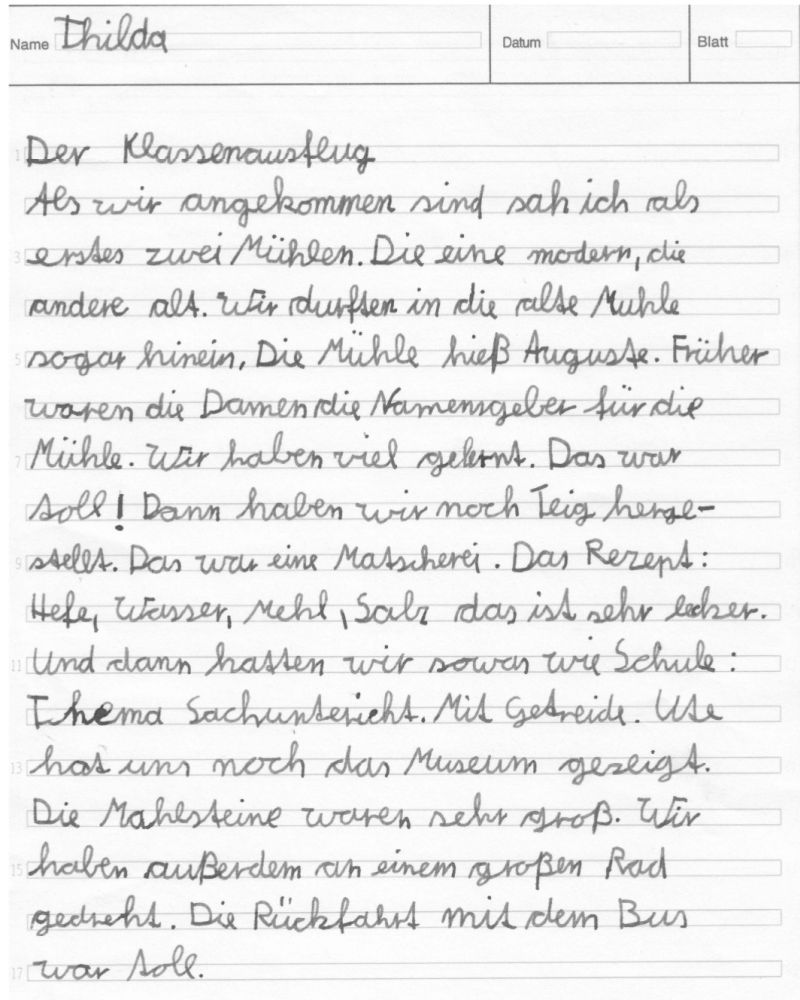 Name Thilda Datum Blatt
1 Der Klassenausflug
Als wir angekommen sind sah ich als
3 erstes zwei Mühlen. Die eine modern, die
andere alt. Wir durften in die alte Muhle
5 sogar hinein, Die Mühle hieß Auguste. Früher
waren die Damen die Namensgeber für die
7 Mühle. Wir haben viel gelernt. Das war
toll! Dann haben wir noch Teig herge-
9 stellt. Das war eine Matscherei. Das Rezept:
Hefe, Wasser, Mehl, Salz das ist sehr lecker.
11 Und dann hatten wir sowas wie Schule:
Thema Sachuntericht. Mit Getreide. Ute
13 hat uns noch das Museum gezeigt.
Die Mahlsteine waren sehr groß. Wir
15 haben außerdem an einem großen Rad
gedreht. Die Rückfahrt mit dem Bus
17 war toll.